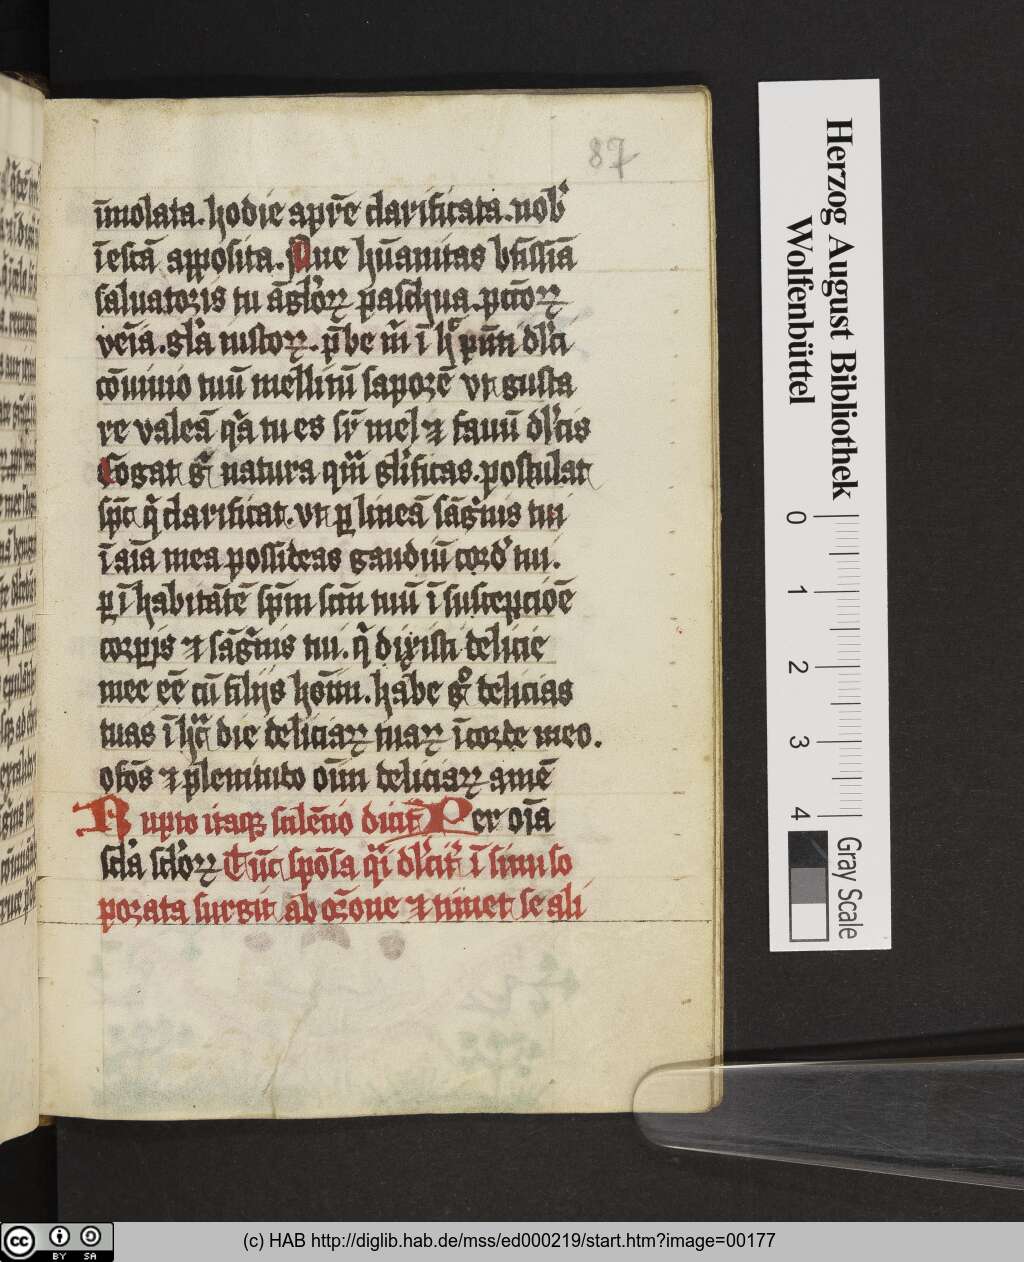 87
īmolata. hodie apr̄e clarificata. nob᷒
ī escā apposita. Aue hūanitas bt̄issīa
saluatoris tu āgl̓oꝝ pascħua. pcc̄oꝝ
vēia. gl̓a iustoꝝ. p̄be m̄ ī h̄
cōuiuio tuū mellitū saporē vt gusta
re valeā qͥa tu es sr̄ mel ⁊ fauū dl̓cis
Cogat g̊ natura qm̄ gl̓ificas. postulat
sp̄c q̄ clarificat. vt ꝑ lineā sāgͥnis tui
ī aīa mea possideas gaudiū cord᷒ tui.
ꝑ īhabitātē sp̄m sctm̄ tuū ī suscepcōē
corꝑis ⁊ sāgͥnis tui. qͥ dixisti delicie
mee eē cū filijs hōīm. habe g̊ delicias
tuas ī hͣc die deliciaꝝ tuaꝝ ī corde meo.
⁊ plenitudo oīm deliciaꝝ amē
Rupto itaqꝫ silēcio dicit᷑ Per oīa
scl̓a scl̓oꝝ Tūc spōsa qͥ dl̓cit᷑ ī sinu so
porata surgit ab or̄one ⁊ ninet se ali
Herzog August Bibliothek
Wolfenbüttel
0 1 2 3 4
Gray Scale
cc BY SA
(c) HAB http://diglib.hab.de/mss/ed000219/start.htm?image=00177